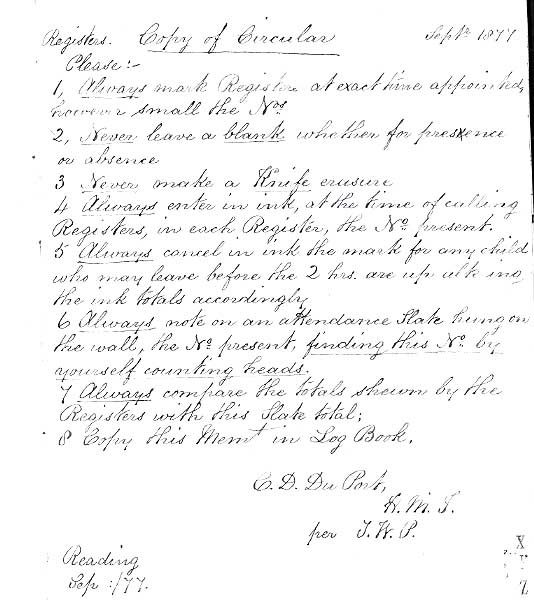 Registers. Copy of Circular Sepr. 1877
Please:-
1, Always mark Registers at exact time appointed,
however small the Nos.
2, Never leave a blank whether for presence
or absence
3 Never make a Knife erasure
4 Always enter in ink, at the time of calling
Registers, in each Register, the No. present.
5 Always cancel in ink the mark for any child
who may leave before the 2 hrs. are up altering
the ink totals accordingly
6 Always note on an attendance Slate hung on
the wall, the No. present, finding this No. by
yourself counting heads.
7 Always compare the totals shewn by the
Registers with this Slate total;
8 Copy this Memt in Log Book.
C. D. Du Port,
H. M. I.
per J. W. P.
Reading
Sep :/77.
X
Y
Z